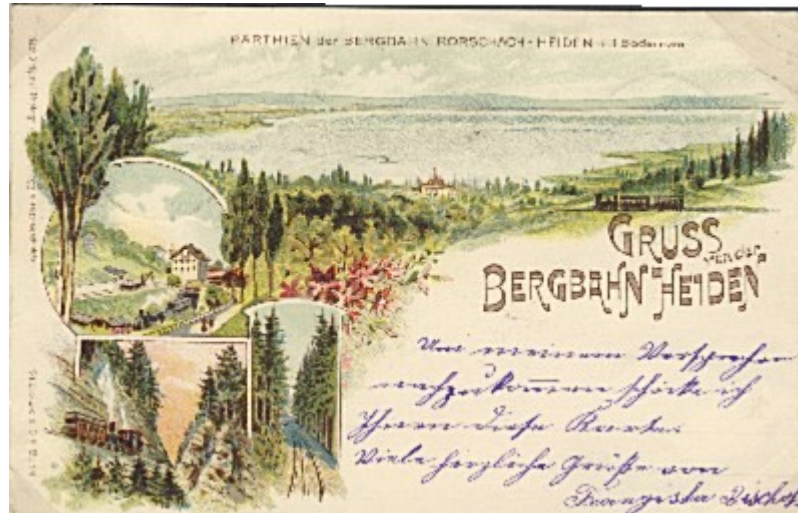 PARTHIEN der BERGBAHN RORSCHACH-HEIDEN mit Bodensee
GRUSS
von der
BERGBAHN HEIDEN
Um meinem Versprechen
nachzukommen schicke ich
Ihnen diese Karte.
Viele herzliche Grüße von
Franziska Bischof